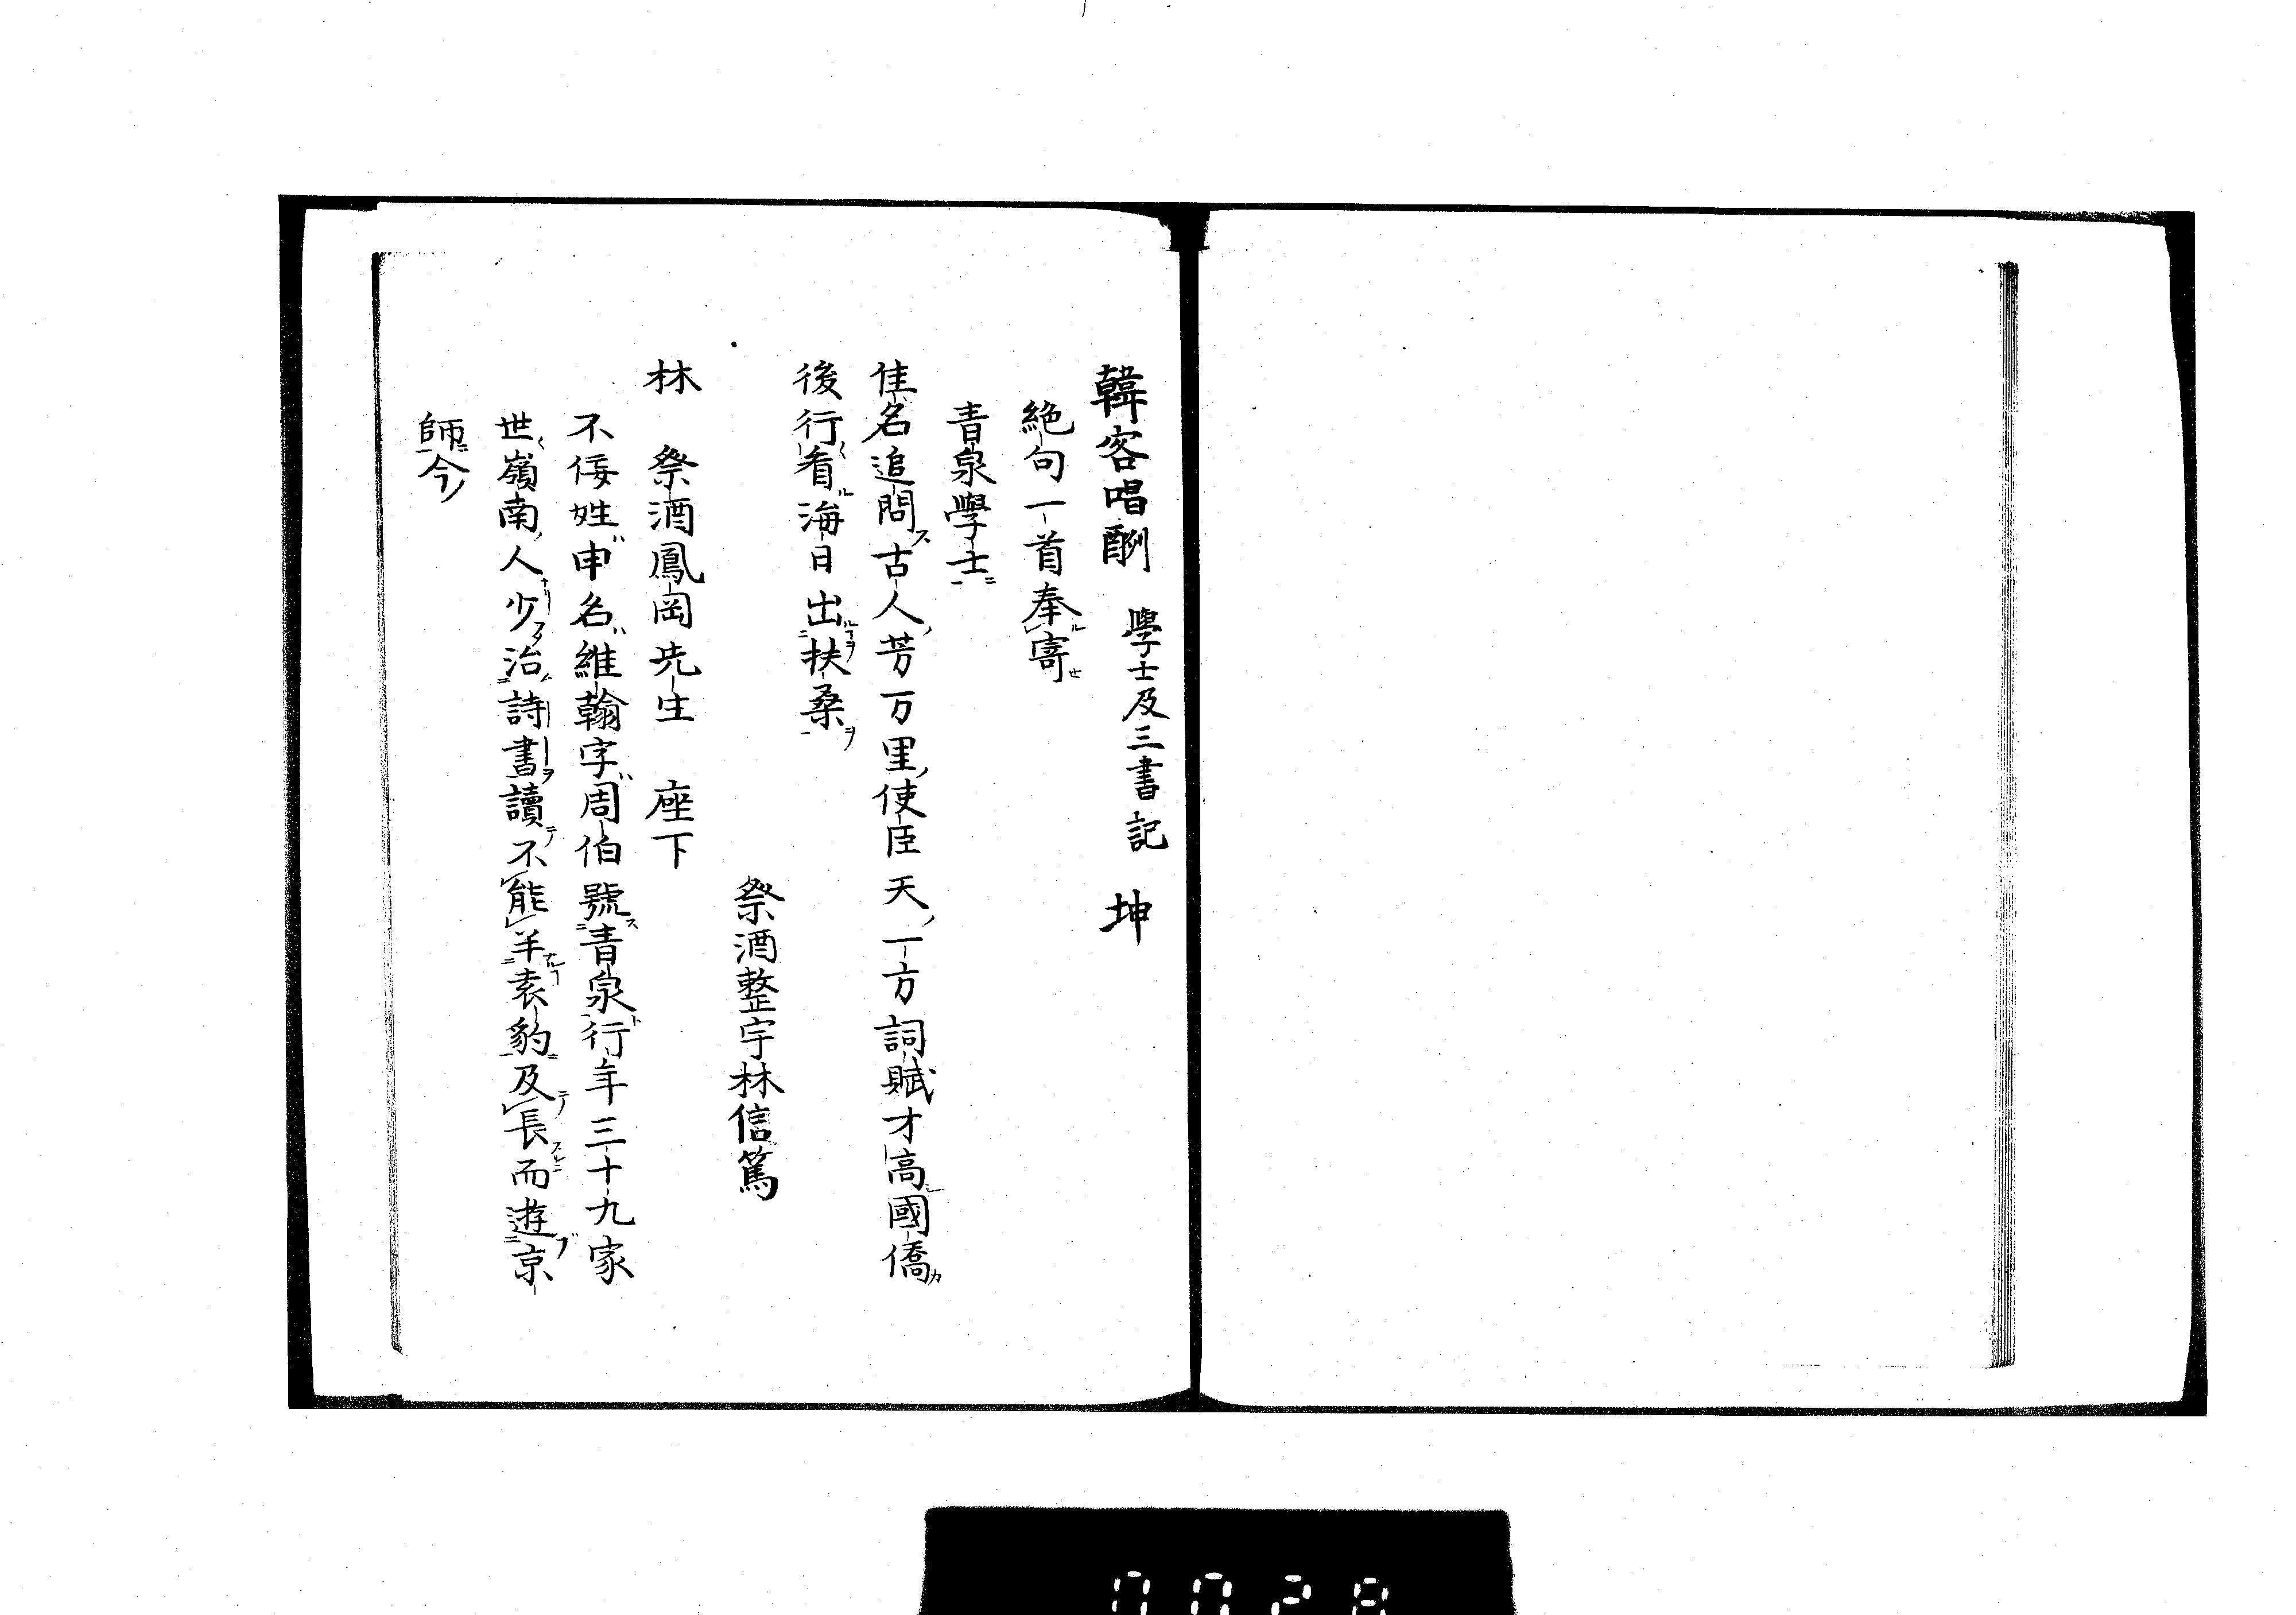 韓客唱酬 學士及三書記 坤
絶句一首奉寄
青泉學士
佳名追問古人芳万里使臣天一方詞賦才高國僑
後行看海日出扶桑
祭酒整宇林信篤
林 祭酒鳳岡先生 座下
不佞姓申名維翰字周伯號青泉行年三十九家
世嶺南人少治詩書讀不能半袁豹及長而遊京
師今